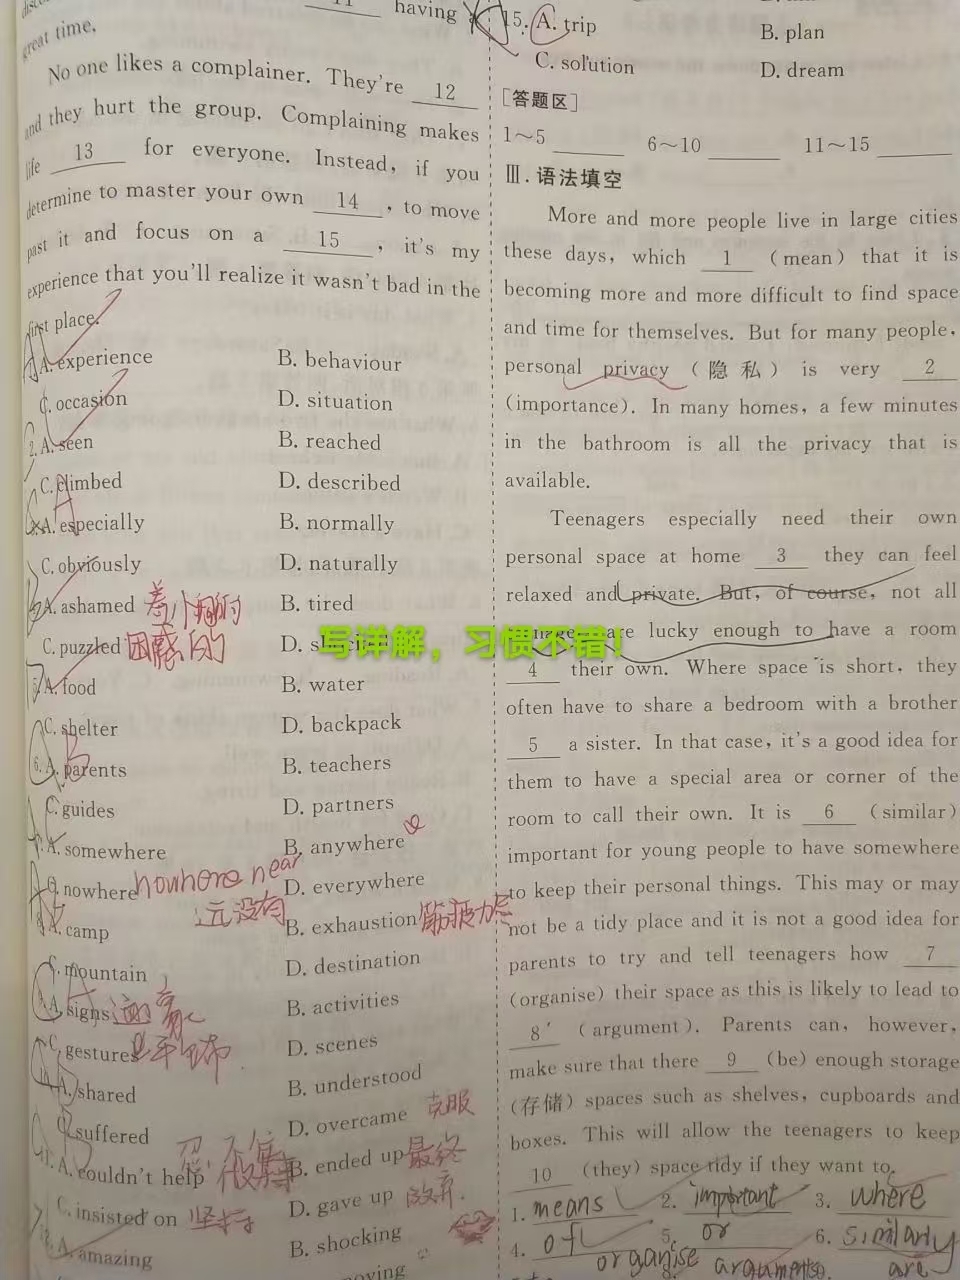 11 having
great time.
No one likes a complainer. They're 12
and they hurt the group. Complaining makes
life 13 for everyone. Instead, if you
determine to master your own 14, to move
past it and focus on a 15, it's my
experience that you'll realize it wasn't bad in the
first place.
A. experience B. behaviour
C. occasion D. situation
2. A. seen B. reached
C. climbed D. described
A. especially B. normally
C. obviously D. naturally
A. ashamed B. tired
C. puzzled 困惑的 D.
A. food B. water
C. shelter D. backpack
6. A. parents B. teachers
C. guides D. partners
A. somewhere B. anywhere
C. nowhere nowhere near D. everywhere
远没有
A. camp B. exhaustion
C. mountain D. destination
A. signs B. activities
C. gestures D. scenes
A. shared B. understood
C. suffered D. overcame 克服
A. couldn't help B. ended up 最终
C. insisted on 坚持 D. gave up 放弃
A. amazing B. shocking
15. A. trip B. plan
C. solution D. dream
[答题区]
1～5 6～10 11～15
Ⅲ. 语法填空
More and more people live in large cities
these days, which 1 (mean) that it is
becoming more and more difficult to find space
and time for themselves. But for many people,
personal privacy (隐私) is very 2
(importance). In many homes, a few minutes
in the bathroom is all the privacy that is
available.
Teenagers especially need their own
personal space at home 3 they can feel
relaxed and private. But, of course, not all
are lucky enough to have a room
4 their own. Where space is short, they
often have to share a bedroom with a brother
5 a sister. In that case, it's a good idea for
them to have a special area or corner of the
room to call their own. It is 6 (similar)
important for young people to have somewhere
to keep their personal things. This may or may
not be a tidy place and it is not a good idea for
parents to try and tell teenagers how 7
(organise) their space as this is likely to lead to
8 (argument). Parents can, however,
make sure that there 9 (be) enough storage
(存储) spaces such as shelves, cupboards and
boxes. This will allow the teenagers to keep
10 (they) space tidy if they want to.
1. means 2. important 3. where
4. of 5. or 6. similarly
organise arguments are
写详解，习惯不错！